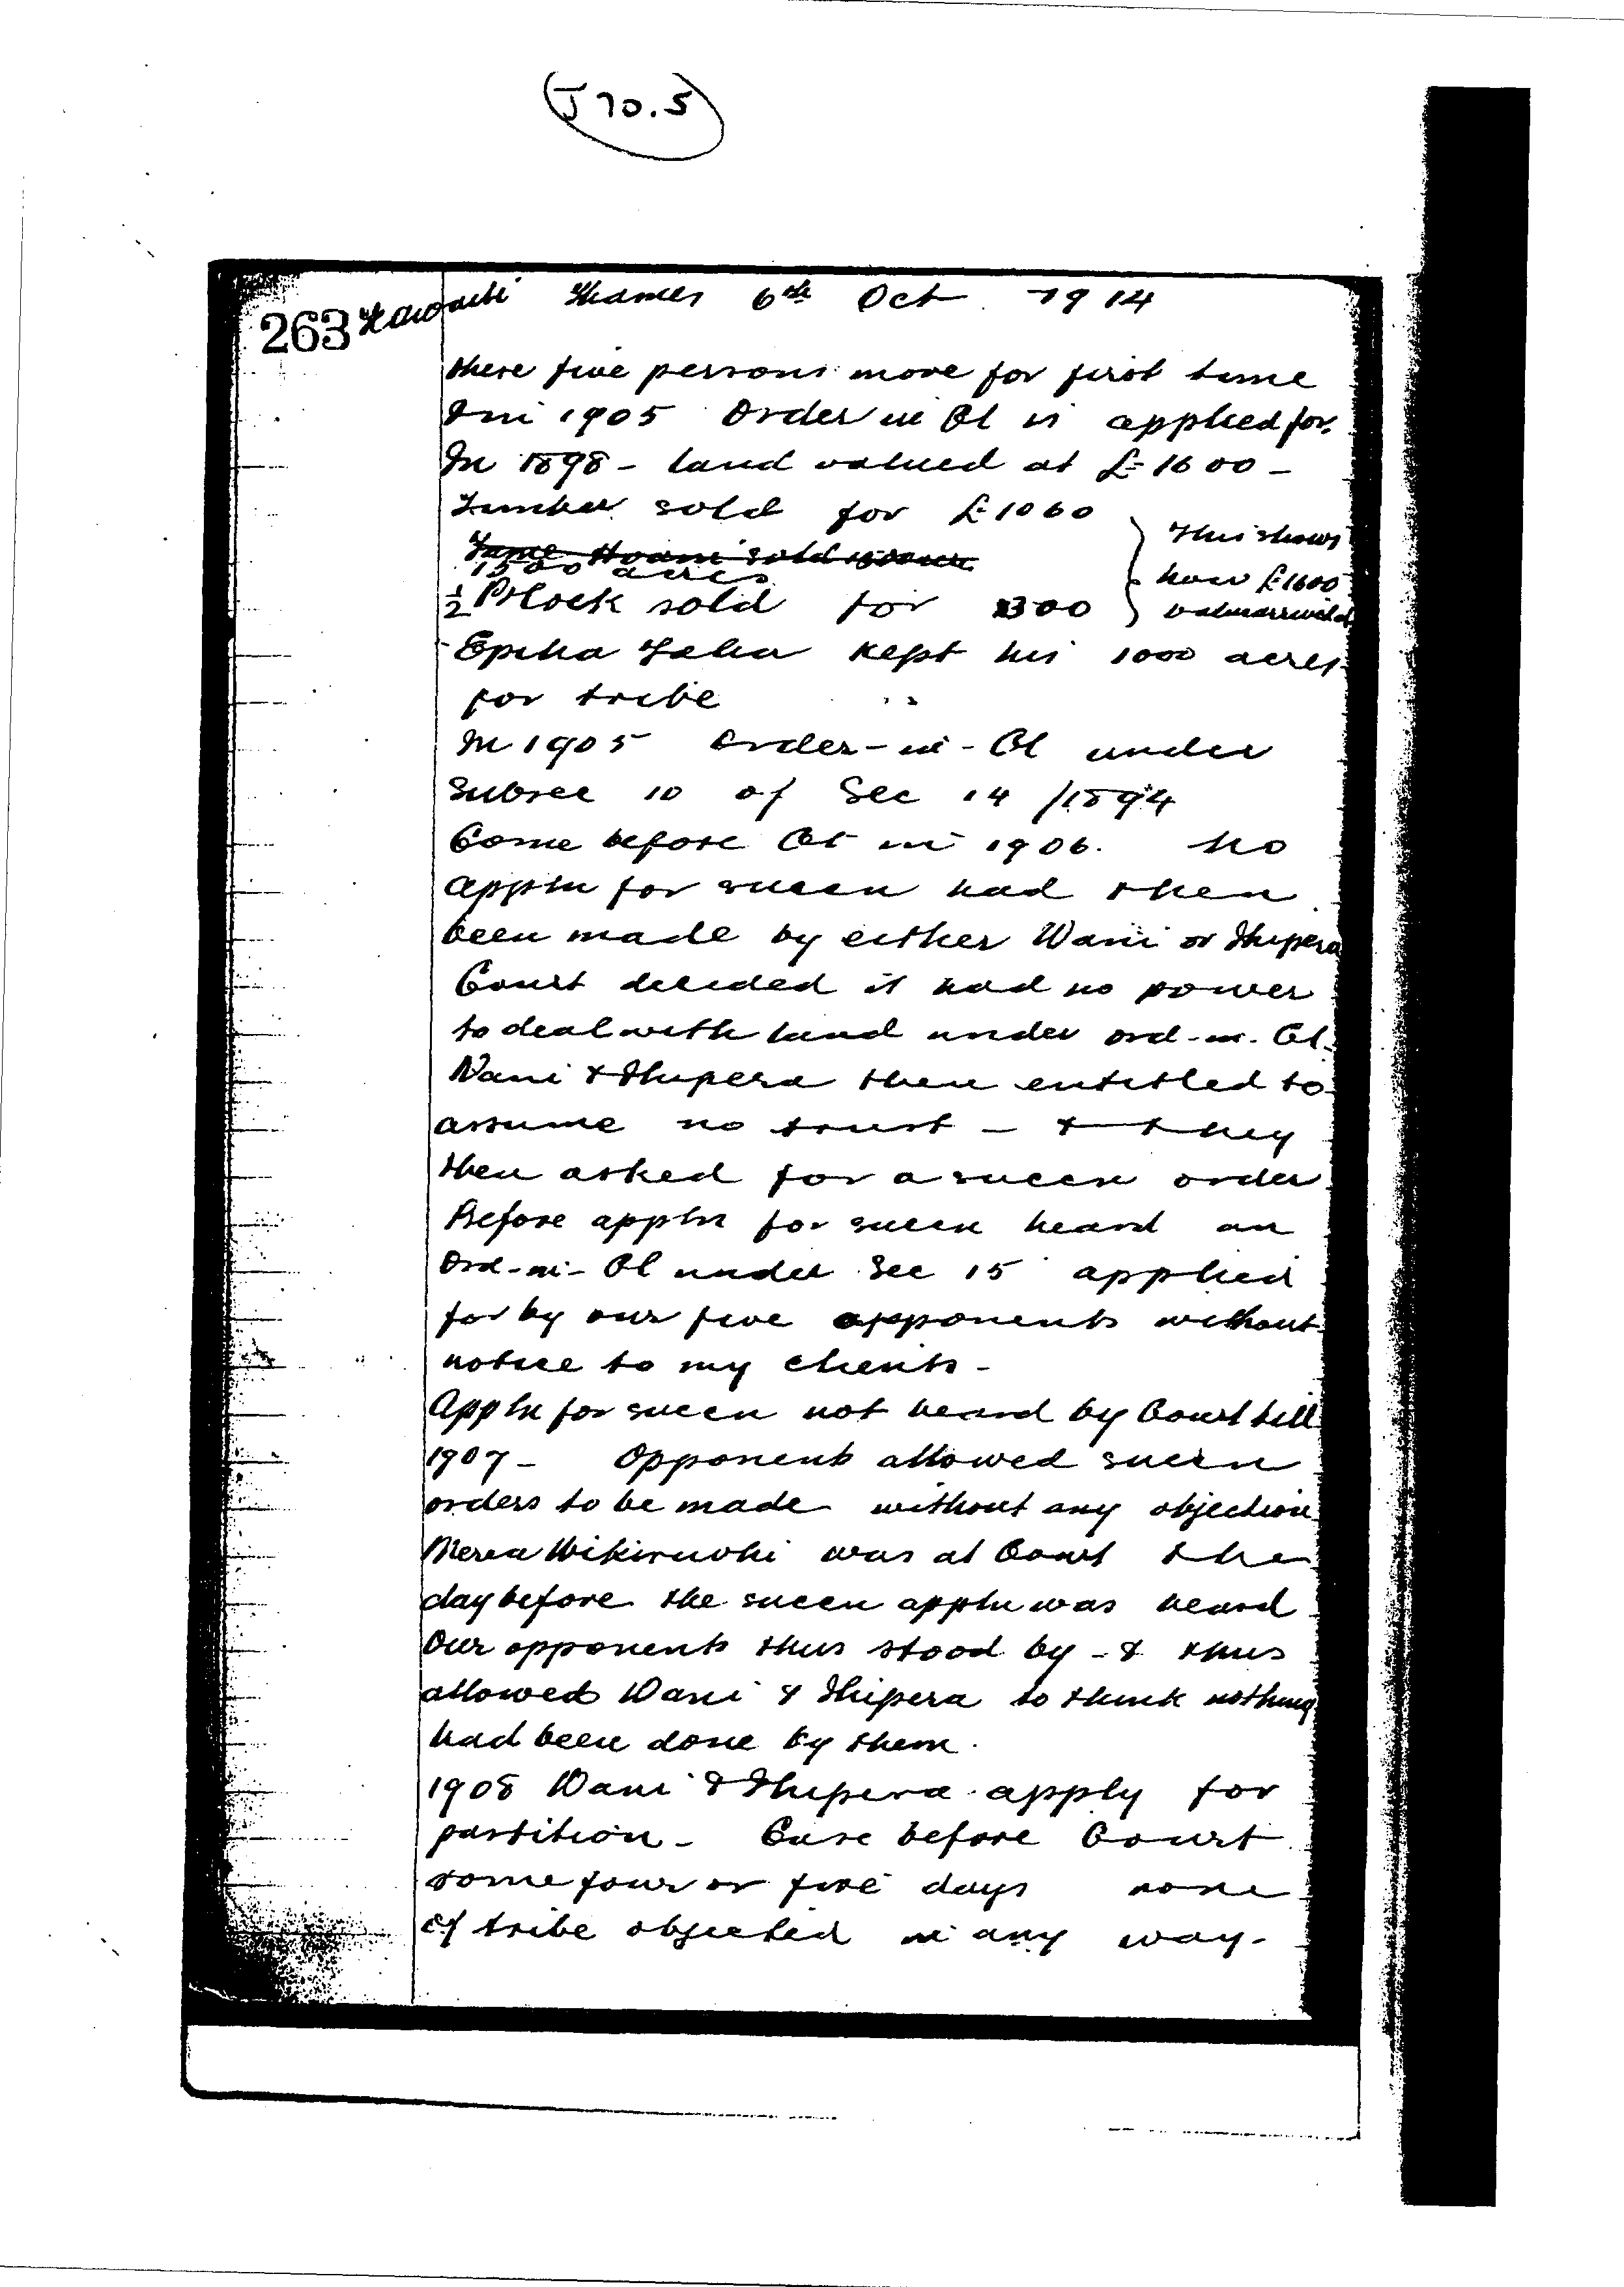 (J 70.5)
263 Thames 6th Oct 1914
these five persons move for first time
1905 Order in Cl is applied for.
In 1898 - land valued at £1600 -
Timber sold for £1060
1500 acres
½ Block sold for 300
This shows
how £1600
Epiha Taha kept his 1000 acres
for tribe
In 1905 Order-in-Cl under
Subsec 10 of Sec 14 /1894
Came before Ct in 1906. No
appln for succn had then
been made by either Wani or Ihipera
Court decided it had no power
to deal with land under ord-in-Cl.
Wani & Ihipera then entitled to
assume no trust - & they
then asked for a succn order
Before appln for succn heard an
Ord-in-Cl under Sec 15 applied
for by our five opponents without
notice to my clients -
Appln for succn not heard by Court till
1907 - Opponents allowed succn
orders to be made without any objection
Merea Wikiruohi was at Court the
day before the succn appln was heard
Our opponents thus stood by - & thus
allowed Wani & Ihipera to think nothing
had been done by them.
1908 Wani & Ihipera apply for
partition - Case before Court
some four or five days none
of tribe objected in any way.